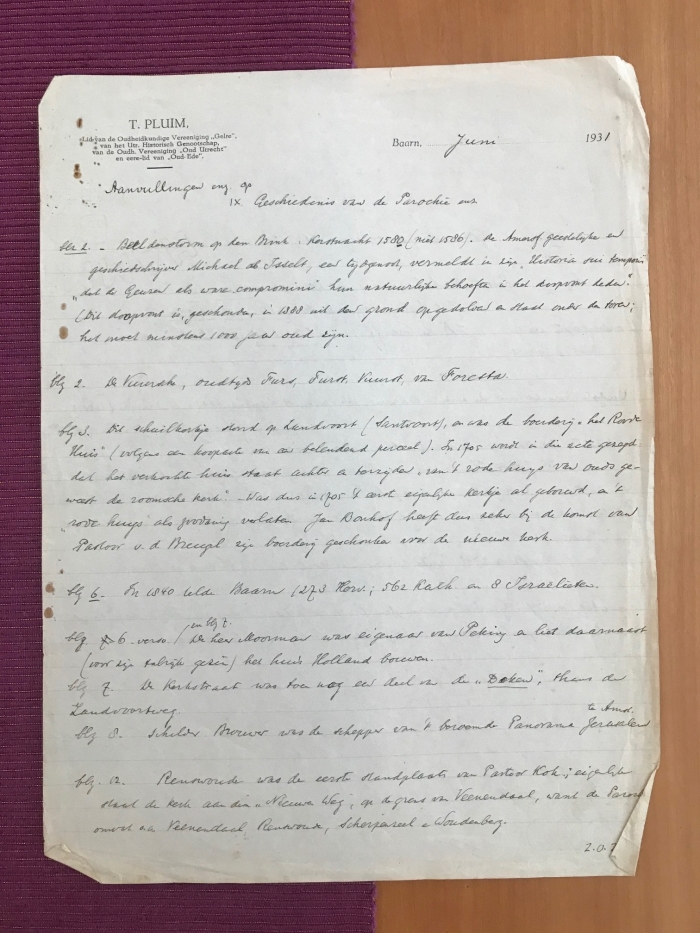 T. PLUIM,
Lid van de Oudheidkundige Vereeniging „Gelre",
van het Utr. Historisch Genootschap,
van de Oudh. Vereeniging „Oud Utrecht"
en eere-lid van „Oud-Ede".
Baarn, Juni 1931
Aanvullingen enz. op
IX Geschiedenis van de Parochie enz.
blz 2. - Beeldenstorm op den Brink. Kerstnacht 1580 (niet 1586). De Amersf. geestelijke en
geschiedschrijver Michael ab Isselt, een tijdgenoot, vermeldt in zijn „Historia sui temporis"
„dat de Geuzen als ware compromini" hun natuurlijke behoeften in het doopvont deden."
(Dit doopvont is, geschonden, in 1888 uit den grond opgedolven en staat onder den toren;
het moet minstens 1000 jaar oud zijn.
blz 2. De Vuursche, oudtijds Furs, Furst, Vuurst, van Foresta.
blz 3. Dit schuilkerkje stond op Zandvoort (Santvoort), en was de boerderij „het Roode
Huis" (volgens een koopacte van een belendend perceel). In 1705 wordt in die acte gezegd
dat het verkochte huis staat achter en terzijden „van 't rode huys van ouds ge-
weest de roomsche kerk". - Was dus in 1705 't eerst eigenlijke kerkje al gebouwd, en 't
„rove huys" als zoodanig verlaten. Jan Benhof heeft dus zeker bij de komst van
Pastoor v. d. Breugel zijn boerderij geschonken voor de nieuwe kerk.
blg 6. In 1840 telde Baarn 1273 Herv.; 562 Kath. en 8 Israelieten.
blg. 6. verso. / en blg 7. De heer Moorman was eigenaar van Peking en liet daarnaast
(voor zijn talrijk gezin) het huis Holland bouwen.
blg 7. De Kerkstraat was toen nog een deel van de „Doken", thans de
Zandvoortweg.
blg 8. Schilder Brouwer was de schepper van 't beroemde Panorama Jeruzalem te Amst.
blg. 12. Renswoude was de eerste standplaats van Pastoor Kok; eigenlijk
staat de kerk aan den „Nieuwe Weg", op de grens van Veenendaal, want de Paroch
omvat van Veenendaal, Renswoude, Scherpenzeel en Woudenberg.
Z.O.Z